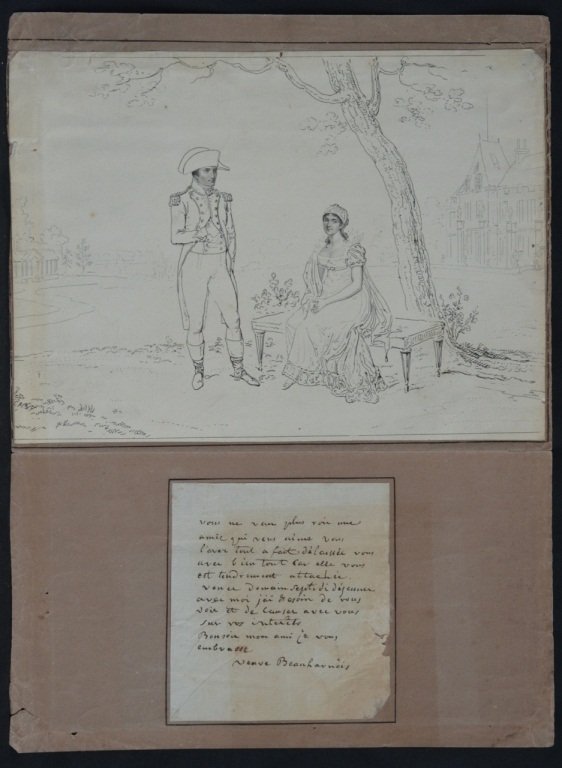 vous ne venez plus voir une
amie qui vous aime vous
l'avez tout a fait délaissée vous
avez bien tort car elle vous
est tendrement attachée.
venez demain septidi déjeuner
avec moi j'ai besoin de vous
voir et de causer avec vous
sur vos interets
Bonsoir mon ami je vous
embrasse
veuve Beauharnois